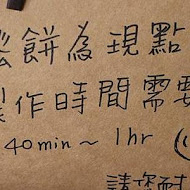 餅為現點
作時間需要
40min～1hr (
請資耐